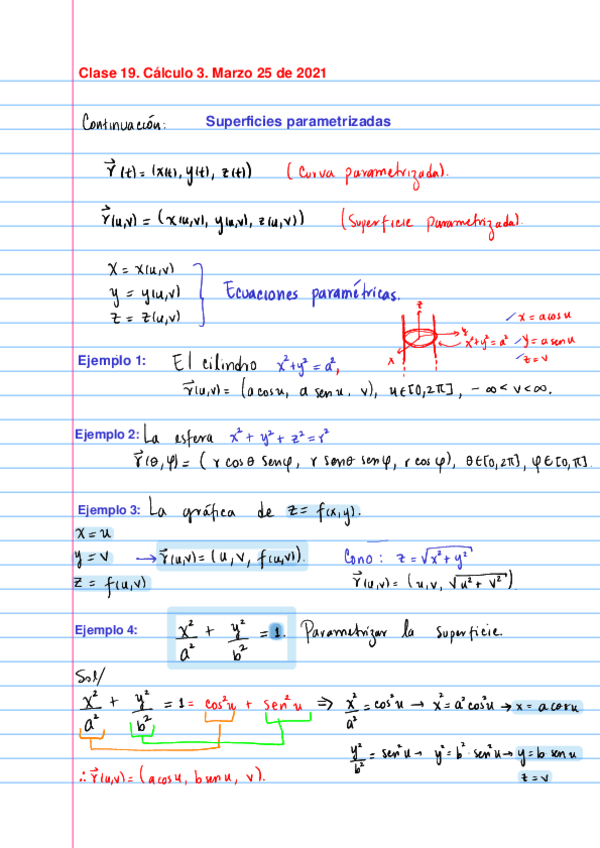 Clase 19. Cálculo 3. Marzo 25 de 2021
Continuación: Superficies parametrizadas
r⃗(t) = (x(t), y(t), z(t)) (Curva parametrizada).
r⃗(u,v) = (x(u,v), y(u,v), z(u,v)) (Superficie parametrizada).
x = x(u,v)
y = y(u,v) Ecuaciones paramétricas.
z = z(u,v)
z
y
x
x²+y²=a²
✓ x = a cos u
✓ y = a sen u
✓ z = v
Ejemplo 1: El cilindro x²+y²=a²,
r⃗(u,v) = (a cos u, a sen u, v), u∈[0,2π], -∞<v<∞.
Ejemplo 2: La esfera x² + y² + z² = r²
r⃗(θ,φ) = (r cosθ senφ, r senθ senφ, r cosφ), θ∈[0,2π], φ∈[0,π].
Ejemplo 3: La gráfica de z = f(x,y).
x = u
y = v → r⃗(u,v) = (u, v, f(u,v)). Cono: z = √(x²+y²)
z = f(u,v) r⃗(u,v) = (u,v, √(u²+v²))
Ejemplo 4: x²/a² + y²/b² = 1. Parametrizar la superficie.
Sol/
x²/a² + y²/b² = 1 = cos²u + sen²u ⇒ x²/a² = cos²u → x² = a²cos²u → x = a cos u
y²/b² = sen²u → y² = b²·sen²u → y = b sen u
∴ r⃗(u,v) = (a cos u, b sen u, v). z = v